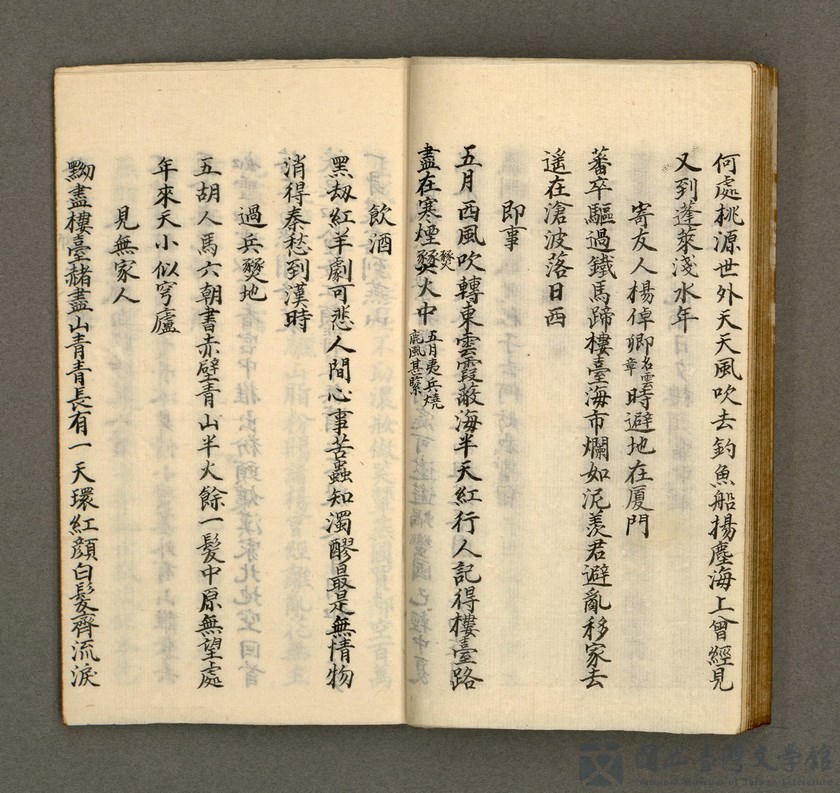 何處桃源世外天天風吹去釣魚船揚塵海上曾經見
又到蓬萊淺水年
寄友人楊倬卿名雲章時避地在厦門
蕃卒驅過鐵馬蹄樓臺海市爛如泥羨君避亂移家去
遥在滄波落日西
即事
五月西風吹轉東雲霞蔽海半天紅行人記得樓臺路
盡在寒煙燹火中五月夷兵燒鹿風甚緊
飲酒
黑刼紅羊劇可悲人間心事苦蟲知濁醪最是無情物
消得秦愁到漢時
過兵燹地
五胡人馬六朝書赤壁青山半火餘一髮中原無望處
年來天小似穹廬
見無家人
黝盡樓臺赭盡山青青長有一天環紅顏白髮齊流淚
國立台灣文學館
National Museum of Taiwan Literature